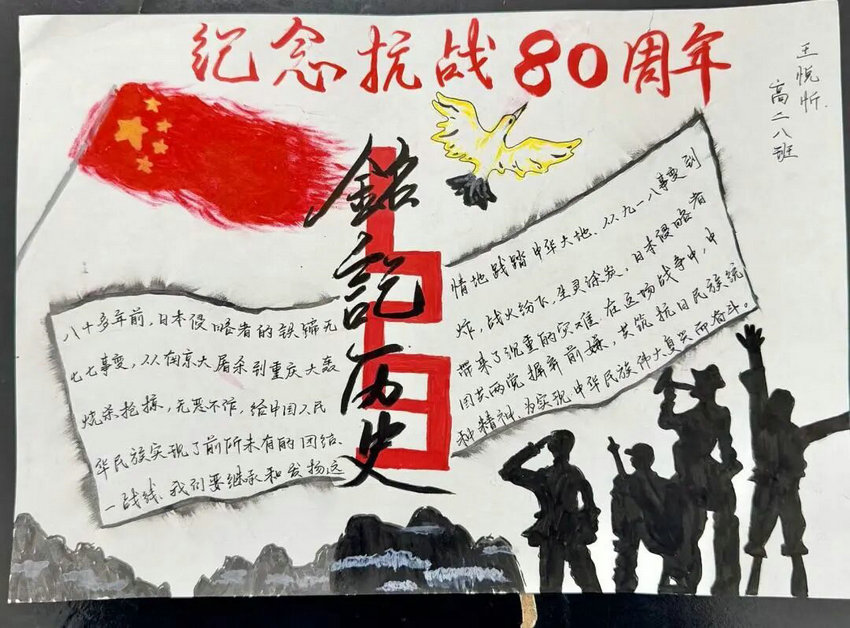 纪念抗战80周年
王悦忻
高二八班
銘記历史
八十多年前,日本侵略者的铁蹄无
情地践踏中华大地、从九一八事变到
七七事变,从南京大屠杀到重庆大轰
炸,战火纷飞,生灵涂炭,日本侵略者
烧杀抢掠,无恶不作,给中国人民
带来了沉重的灾难.在这场战争中,中
华民族实现了前所未有的团结、
国共两党摒弃前嫌,共筑抗日民族统
一战线.我们要继承和发扬这
种精神.为实现中华民族伟大复兴而奋斗。